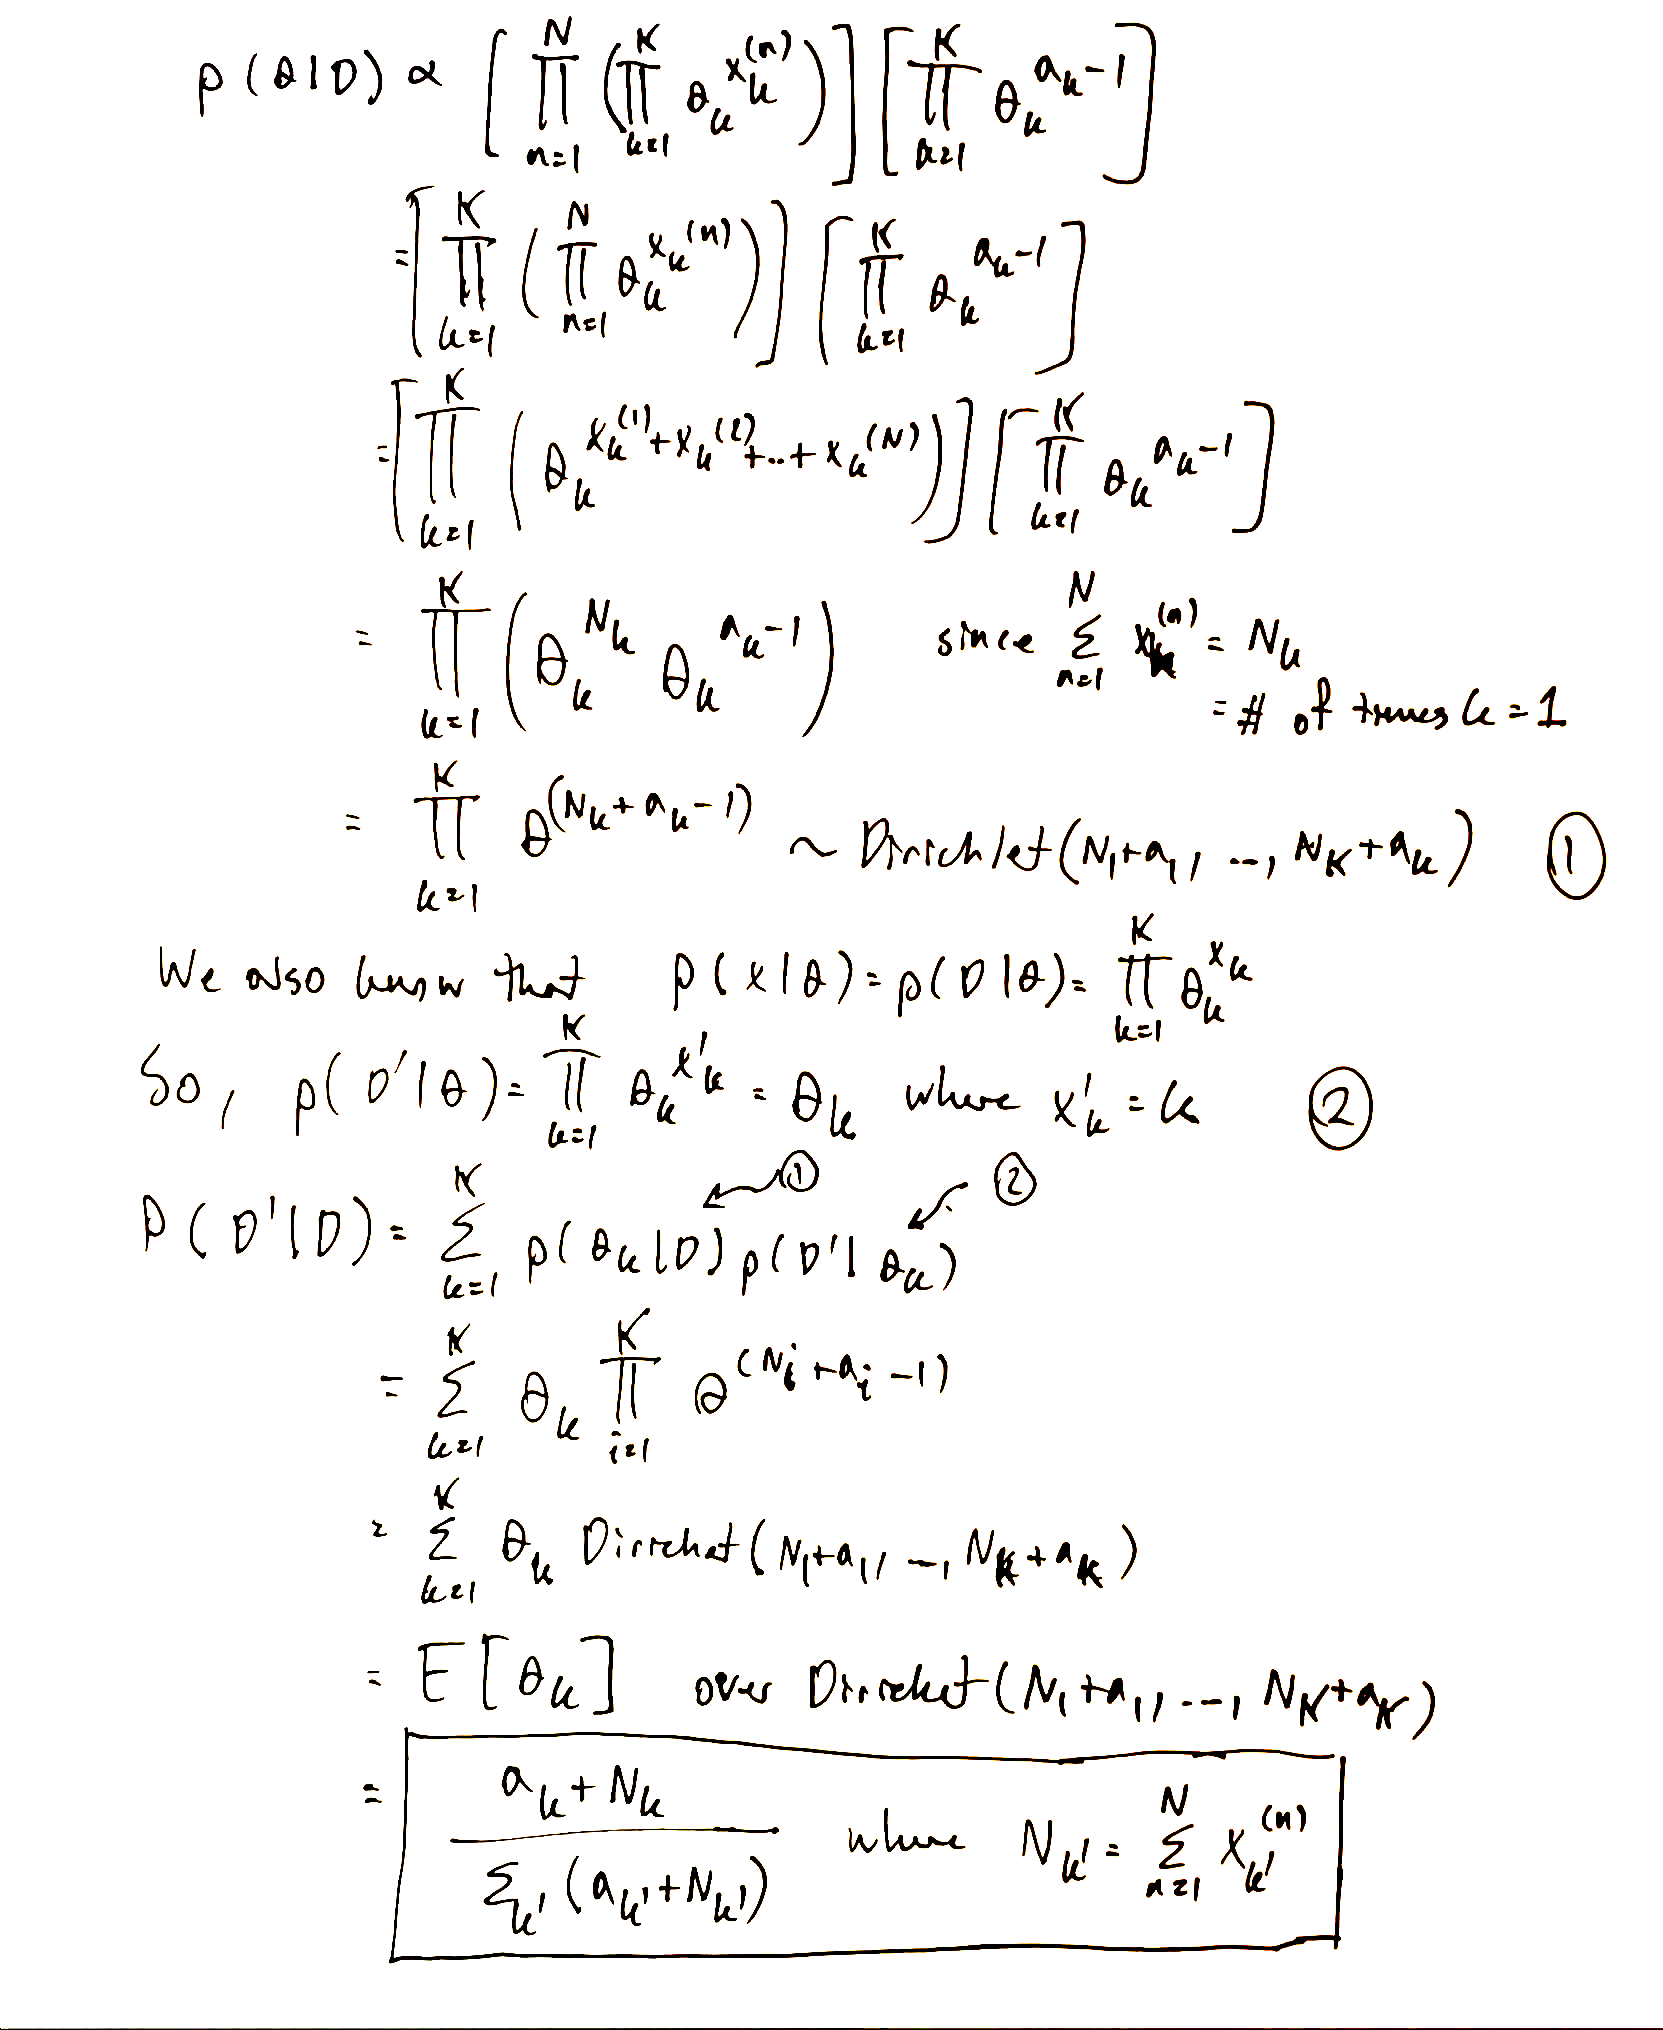 p(θ|D) ∝ [∏_{n=1}^{N} (∏_{k=1}^{K} θ_k^{x_k^{(n)}})] [∏_{k=1}^{K} θ_k^{a_k-1}]
= [∏_{k=1}^{K} (∏_{n=1}^{N} θ_k^{x_k^{(n)}})] [∏_{k=1}^{K} θ_k^{a_k-1}]
= [∏_{k=1}^{K} (θ_k^{x_k^{(1)}+x_k^{(2)}+..+x_k^{(N)}})] [∏_{k=1}^{K} θ_k^{a_k-1}]
= ∏_{k=1}^{K} (θ_k^{N_k} θ_k^{a_k-1}) since Σ_{n=1}^{N} x_k^{(n)} = N_k
= # of times k = 1
= ∏_{k=1}^{K} θ^{(N_k+a_k-1)} ~ Dirichlet(N_1+a_1, ..., N_K+a_k) ①
We also know that p(x|θ) = p(D|θ) = ∏_{k=1}^{K} θ_k^{x_k}
So, p(D'|θ) = ∏_{k=1}^{K} θ_k^{x'_k} = θ_k where x'_k = k ②
① ②
P(D'|D) = Σ_{k=1}^{K} p(θ_k|D) p(D'|θ_k)
= Σ_{k=1}^{K} θ_k ∏_{i=1}^{K} θ^{(N_i+a_i-1)}
= Σ_{k=1}^{K} θ_k Dirichet(N_1+a_1, ..., N_K+a_K)
= E[θ_k] over Dirichet(N_1+a_1, ..., N_K+a_K)
= \frac{a_k+N_k}{Σ_{k'}(a_{k'}+N_{k'})} where N_{k'} = Σ_{n=1}^{N} x_{k'}^{(n)}